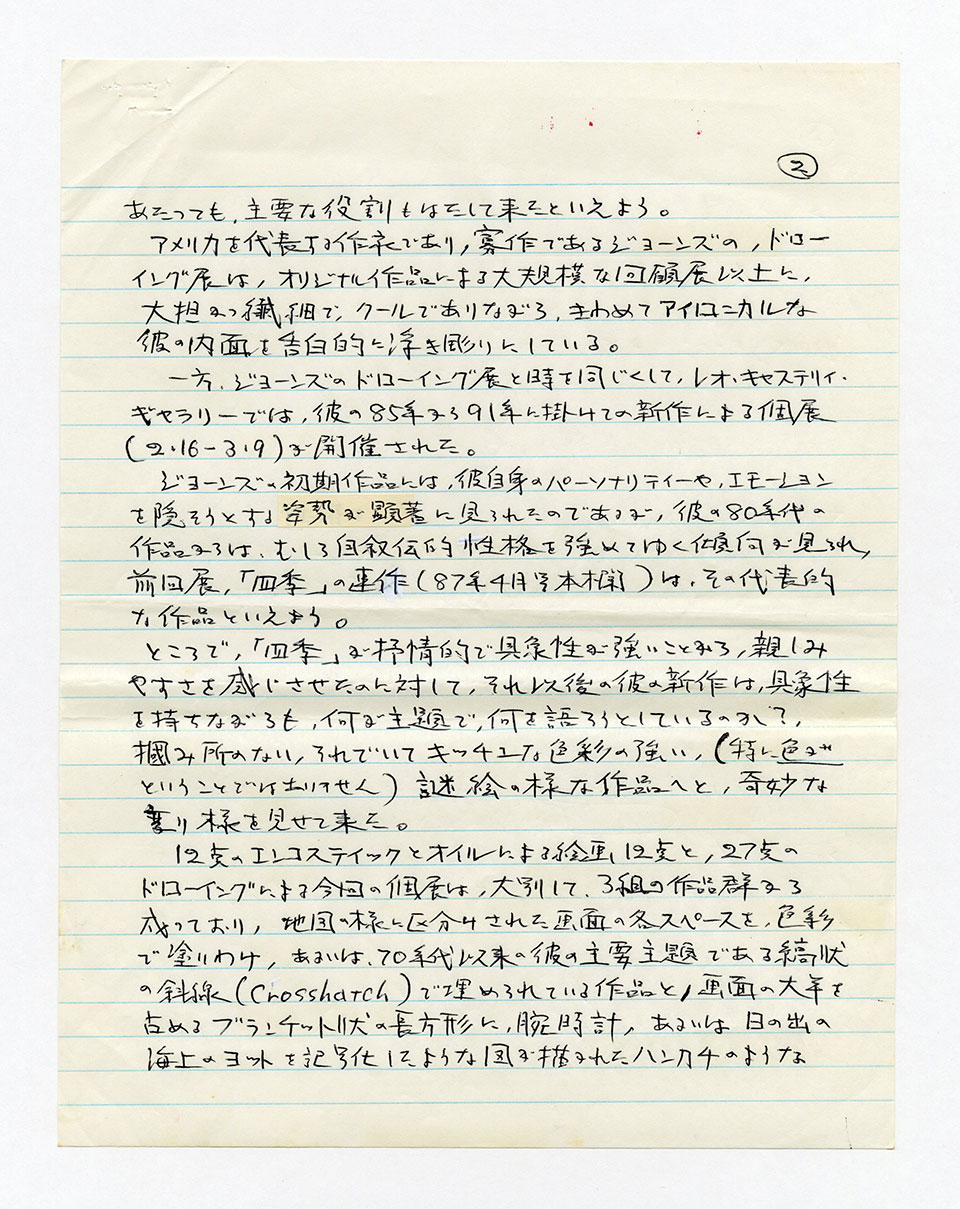 ②
あたっても、主要な役割もはたして来たといえよう。
アメリカを代表する作家であり，寡作であるジョーンズの，ドロー
イング展は，オリジナル作品による大規模な回顧展以上に，
大担かつ繊細で，クールでありながら，きわめてアイロニカルな
彼の内面を告白的に浮き彫りにしている。
一方、ジョーンズのドローイング展と時を同じくして，レオ・キャステリィ・
ギャラリーでは，彼の85年から91年に掛けての新作による個展
(2.16－3.9)が開催された。
ジョーンズの初期作品には，彼自身のパーソナリティーや，エモーション
を隠そうとする姿勢が顕著に見られたのであるが，彼の80年代の
作品からは、むしろ自叙伝的性格を強めてゆく傾向が見られ，
前回展，「四季」の連作(87年4月号本欄)は，その代表的
な作品といえよう。
ところで，「四季」が抒情的で具象性が強いことから，親しみ
やすさを感じさせたのに対して，それ以後の彼の新作は，具象性
を持ちながらも，何が主題で，何を語ろうとしているのか？，
摑み所のない，それでいてキッチュな色彩の強い，(特に色が
ということではありません)謎絵の様な作品へと，奇妙な
変り様を見せて来た。
12点のエンコスティックとオイルによる絵画12点と，27点の
ドローイングによる今回の個展は，大別して，3組の作品群から
成っており，地図の様に区分けされた画面の各スペースを，色彩
で塗りわけ，あるいは、70年代以来の彼の主要主題である縞状
の斜線(Crosshatch)で埋められている作品と，画面の大半を
占めるブランケット状の長方形に，腕時計，あるいは日の出の
海上のヨットを記号化したような図が描かれたハンカチのような